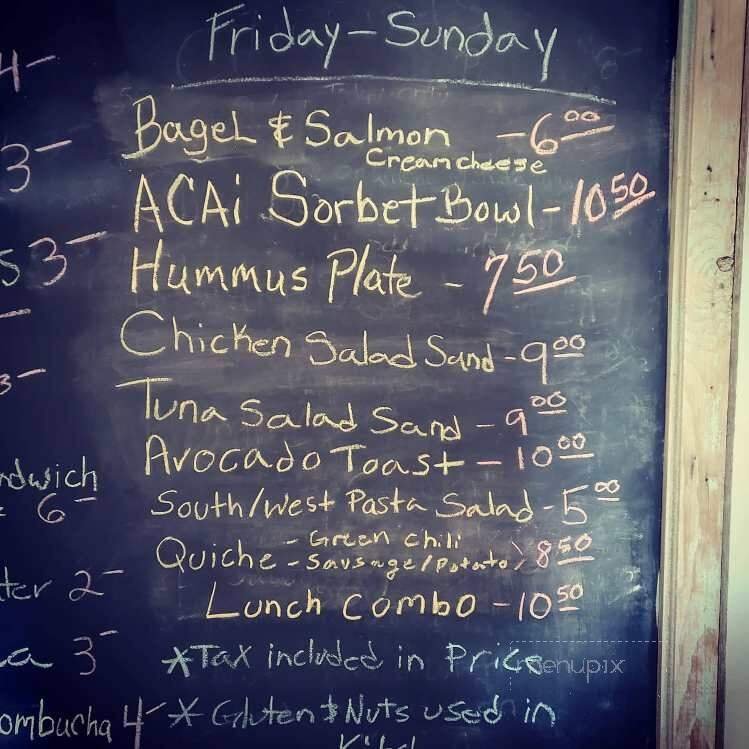 Friday - Sunday
4-
Bagel & Salmon - 6.00
Cream cheese
3-
ACAi Sorbet Bowl - 10.50
S 3-
Hummus Plate - 7.50
Chicken Salad Sand - 9.00
3-
Tuna Salad Sand - 9.00
Avocado Toast - 10.00
ndwich
6-
South/West Pasta Salad - 5.00
Quiche - Green chili
- Sausage/Potato > 8.50
ter 2-
Lunch Combo - 10.50
a 3-
*Tax included in Price
menupix
ombucha 4-
* Gluten & Nuts used in